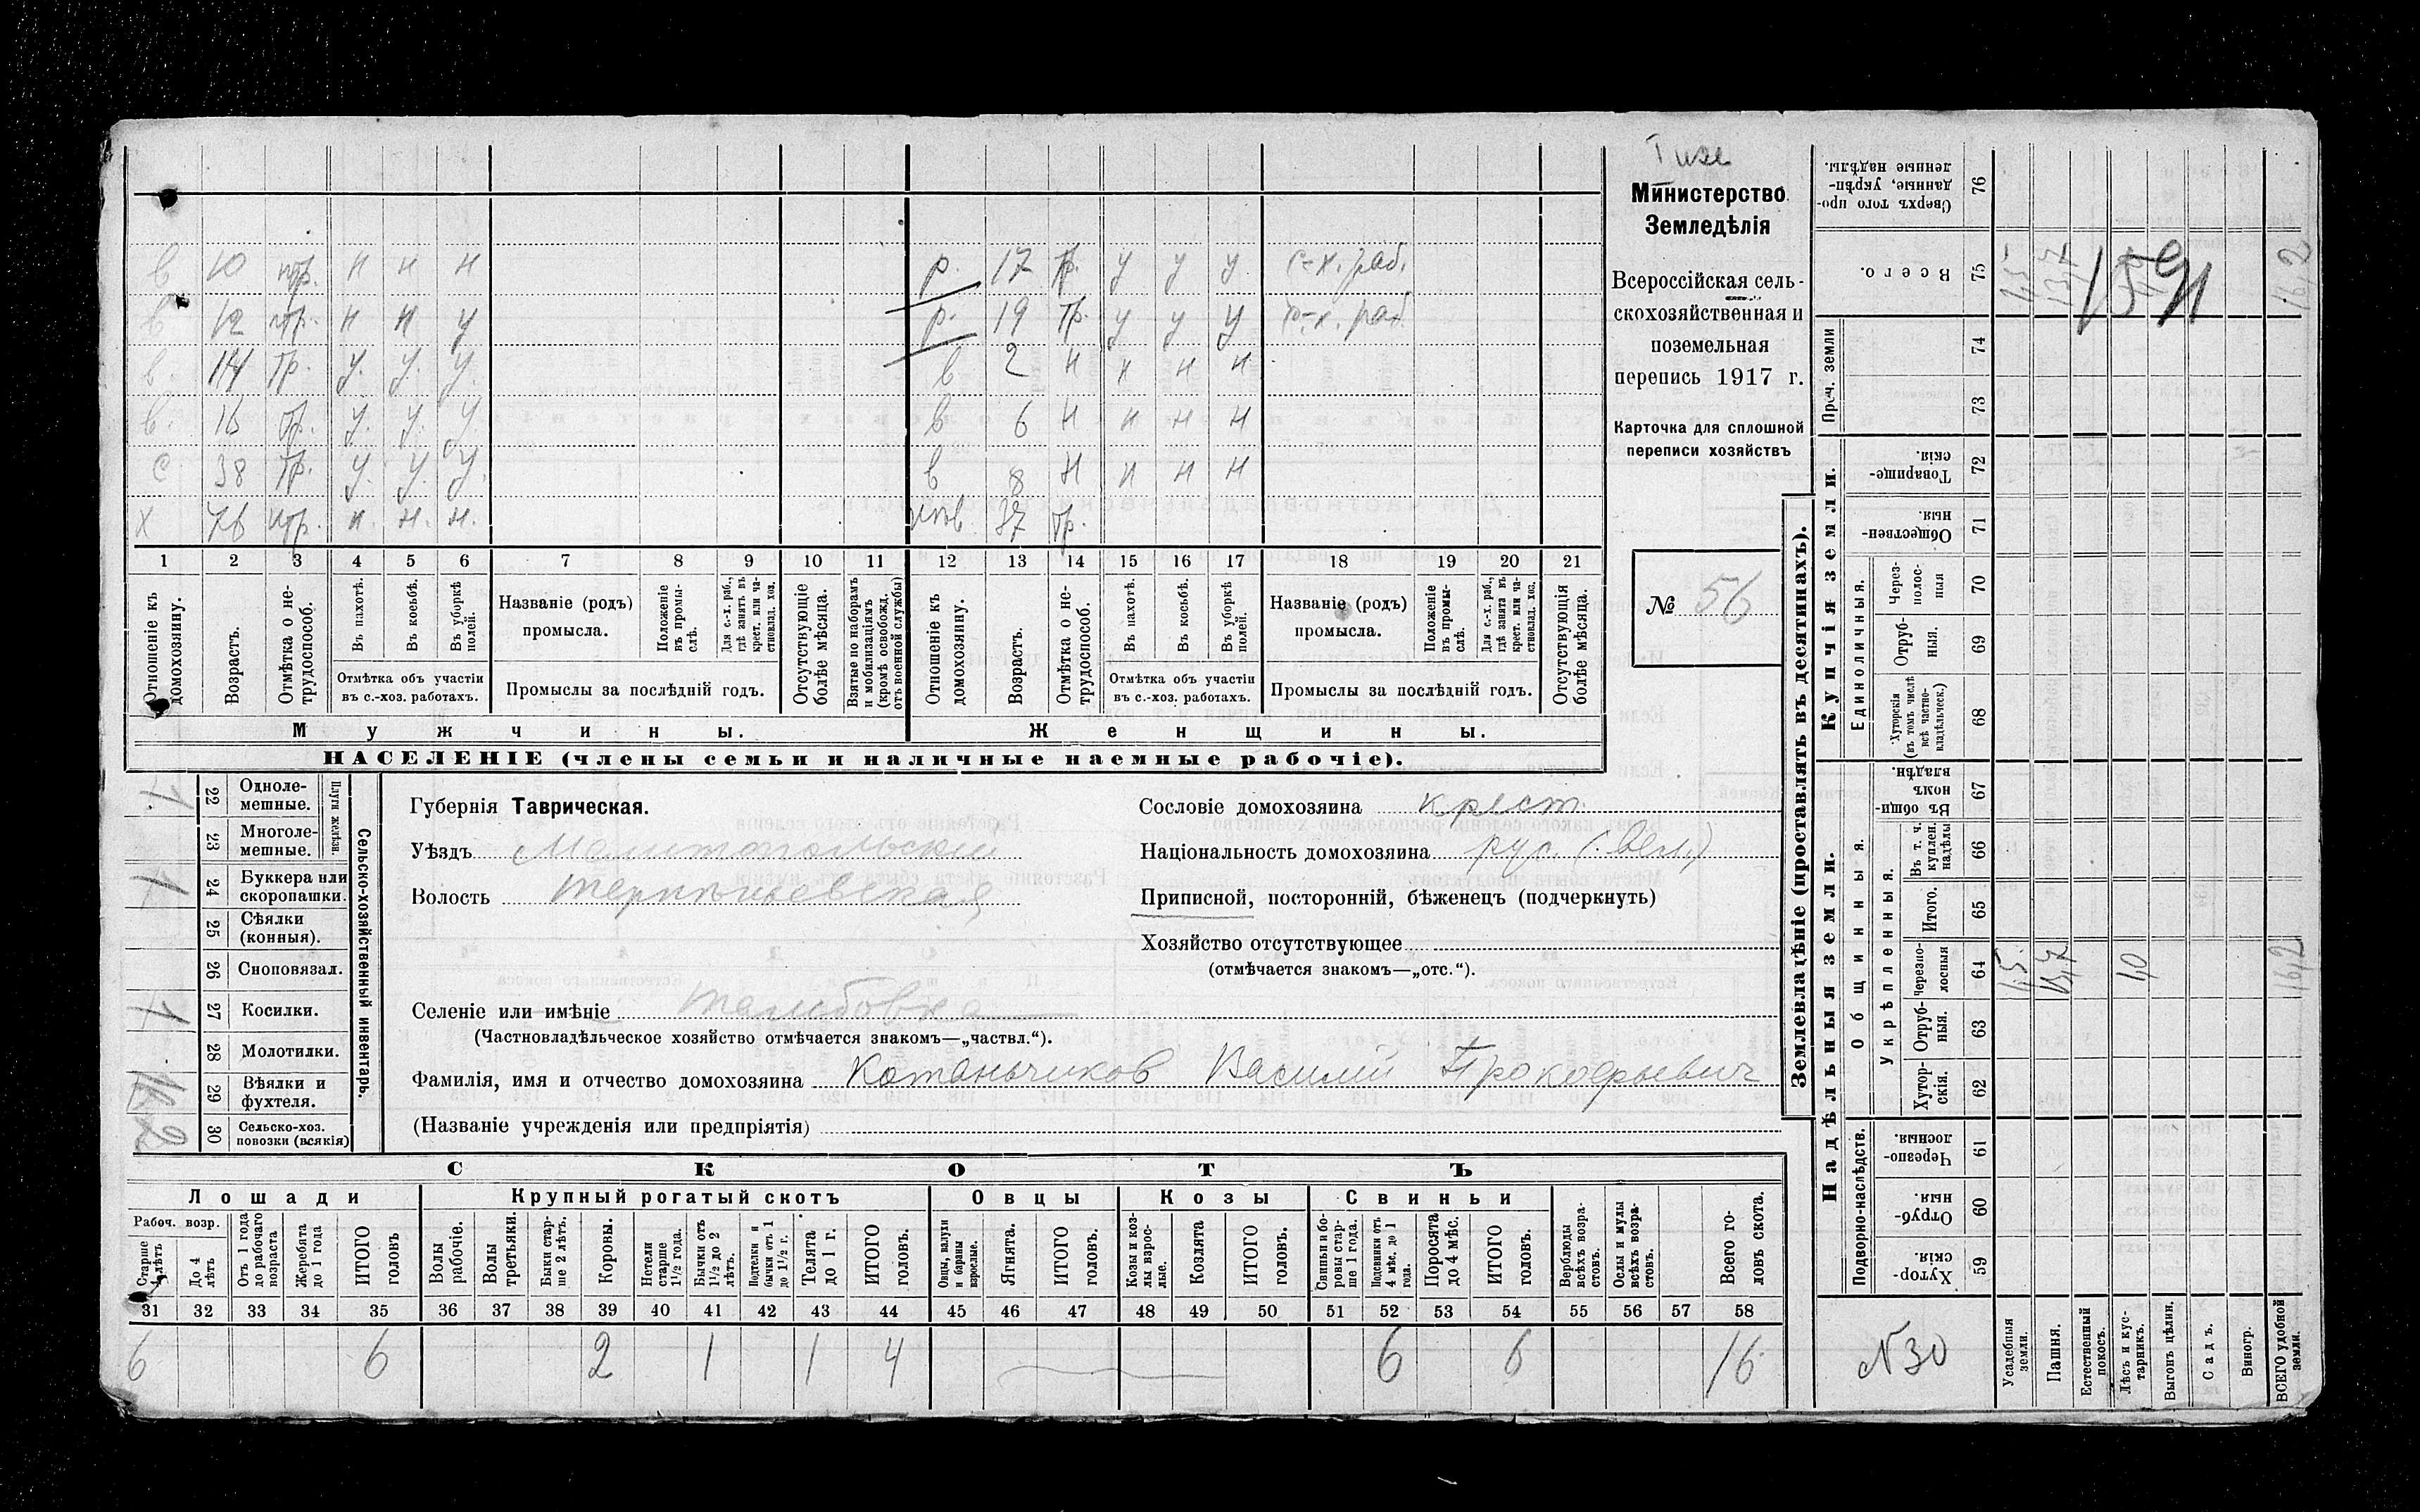 Министерство
Земледѣлія
Всероссійская сель-
скохозяйственная и
поземельная
перепись 1917 г.
Карточка для сплошной
переписи хозяйствъ
№ 56
в 10 нтр. н н н р. 17 тр. у у у с-х. раб.
в 12 нтр. н н у р. 19 тр. у у у с-х. раб
в. 14 тр. у. у. у. в 2 н н н н
в. 16 тр. у. у. у. в 6 н н н н
с 38 тр. у. у. у. в 8 н н н н
х 76 нтр. н. н. н. 37 тр.
1 2 3 4 5 6 7 8 9 10 11 12 13 14 15 16 17 18 19 20 21
Отношеніе къ домохозяину.
Возрастъ.
Отмѣтка о не-трудоспособ.
Въ пахотѣ.
Въ косьбѣ.
Въ уборкѣ полей.
Отмѣтка объ участіи
въ с.-хоз. работахъ.
Названіе (родъ)
промысла.
Положеніе въ промы-слѣ.
Для с.-х. раб., гдѣ занятъ въ крест. или ча-стновлад. хоз.
Промыслы за послѣдній годъ.
Отсутствующіе болѣе мѣсяца.
Взятые по наборамъ и мобилизаціямъ (кромѣ освобожд. отъ военной службы)
Отношеніе къ домохозяину.
Возрастъ.
Отмѣтка о не-трудоспособ.
Въ пахотѣ.
Въ косьбѣ.
Въ уборкѣ полей.
Отмѣтка объ участіи
въ с.-хоз. работахъ.
Названіе (родъ)
промысла.
Положеніе въ промы-слѣ.
Для с.-х. раб., гдѣ занята въ крест. или ча-стновлад. хоз.
Промыслы за послѣдній годъ.
Отсутствующія болѣе мѣсяца.
Мужчины. Женщины.
НАСЕЛЕНІЕ (члены семьи и наличные наемные рабочіе).
Сельско-хозяйственный инвентарь.
Плуги желѣзн.
22 Одноле-мешные. 1.
23 Многоле-мешные.
24 Буккера или скоропашки. 1
25 Сѣялки (конныя).
26 Сноповязал.
27 Косилки. 1
28 Молотилки.
29 Вѣялки и фухтеля.
30 Сельско-хоз. повозки (всякія) 2
Губернія Таврическая.
Уѣздъ Мелитопольскій
Волость Терпѣньевская
Селеніе или имѣніе Тамбовка
(Частновладѣльческое хозяйство отмѣчается знакомъ—„частвл.“).
Фамилія, имя и отчество домохозяина Котаньчиков Василій Прокофьевич
(Названіе учрежденія или предпріятія)
Сословіе домохозяина крест.
Національность домохозяина рус. (вел.)
Приписной, посторонній, бѣженец (подчеркнуть)
Хозяйство отсутствующее
(отмѣчается знакомъ—„отс.“).
СКОТЪ
Лошади Крупный рогатый скотъ Овцы Козы Свиньи
Рабоч. возр.
Старше 4 лѣтъ
До 4 лѣтъ
Отъ 1 года до рабочаго возраста
Жеребята до 1 года
ИТОГО головъ
Волы рабочіе.
Волы третьяки.
Быки стар-ше 2 лѣтъ.
Коровы.
Нетели старше 1½ года.
Бычки отъ 1½ до 2 лѣтъ.
Подтелки и бычки отъ 1 до 1½ г.
Телята до 1 г.
ИТОГО головъ.
Овцы, валухи и бараны взрослые.
Ягнята.
ИТОГО головъ.
Козы и коз-лы взрос-лые.
Козлята
ИТОГО головъ.
Свиньи и бо-ровы стар-ше 1 года.
Подсвинки отъ 4 мѣс. до 1 года.
Поросята до 4 мѣс.
ИТОГО головъ.
Верблюды всѣхъ возра-стовъ.
Ослы и мулы всѣхъ возра-стовъ.
Всего го-ловъ скота.
31 32 33 34 35 36 37 38 39 40 41 42 43 44 45 46 47 48 49 50 51 52 53 54 55 56 57 58
6 6 2 1 1 4 6 6 16
Землевладѣніе (проставлять въ десятинахъ).
Надѣльныя земли. Купчія земли.
Прoч. земли
Подворно-наслѣдств.
Общинныя.
Укрѣпленныя.
Единоличныя.
76 Сверхъ того про-данные, укрѣп-ленные надѣлы.
75 Всего. 1,5 13,7 16,2
74
73
72 Товарище-скія.
71 Обществен-ныя.
70 Через-полос-ныя
69 Отруб-ныя.
68 Хуторскія (въ томъ числѣ всѣ частно-владѣльческ.)
67 Въ общин-номъ владѣн.
66 Въ т. ч. куплен. надѣлы
65 Итого.
64 Черезпо-лосныя 1,5 13,7 1,0 16,2
63 Отруб-ныя.
62 Хутор-скія.
61 Черезпо-лосныя.
60 Отруб-ныя.
59 Хутор-скія.
N 30
Усадебныя земли.
Пашня.
Естественный покосъ.
Лѣсъ и кус-тарникъ.
Выгонъ цѣлин.
Садъ.
Виногр.
ВСЕГО удобной земли.